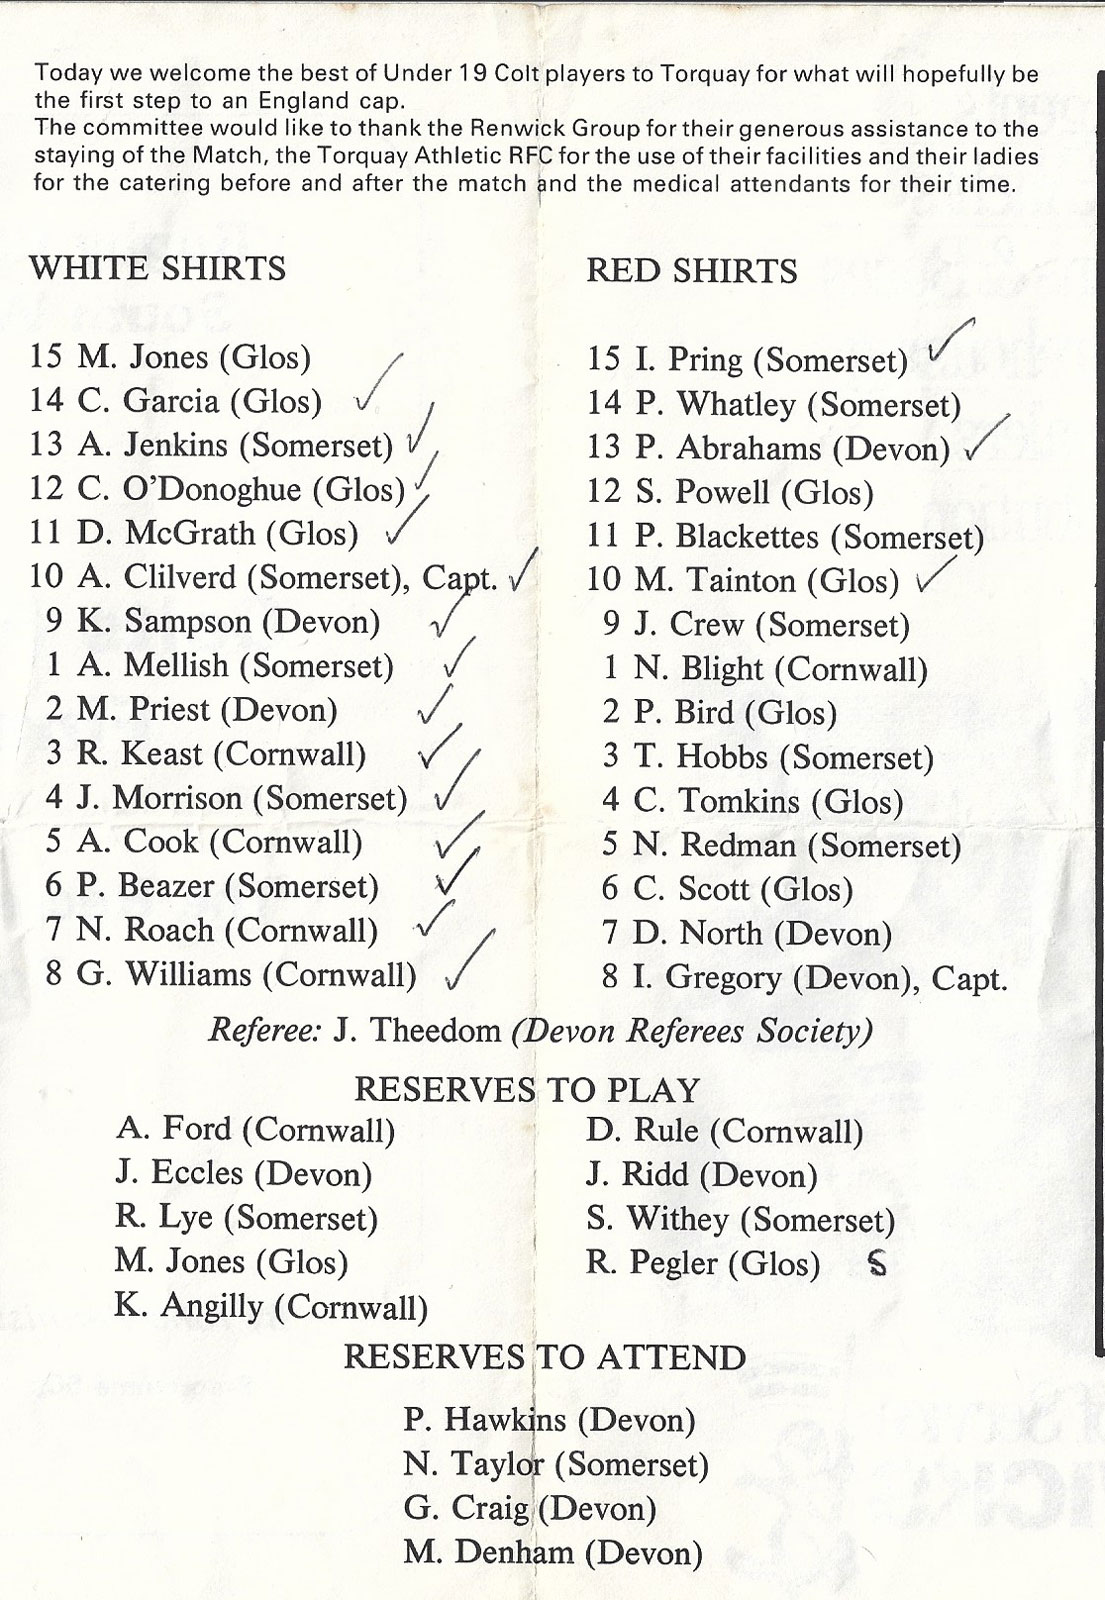 Today we welcome the best of Under 19 Colt players to Torquay for what will hopefully be
the first step to an England cap.
The committee would like to thank the Renwick Group for their generous assistance to the
staying of the Match, the Torquay Athletic RFC for the use of their facilities and their ladies
for the catering before and after the match and the medical attendants for their time.
WHITE SHIRTS
15 M. Jones (Glos)
14 C. Garcia (Glos)
13 A. Jenkins (Somerset)
12 C. O'Donoghue (Glos)
11 D. McGrath (Glos)
10 A. Clilverd (Somerset), Capt.
9 K. Sampson (Devon)
1 A. Mellish (Somerset)
2 M. Priest (Devon)
3 R. Keast (Cornwall)
4 J. Morrison (Somerset)
5 A. Cook (Cornwall)
6 P. Beazer (Somerset)
7 N. Roach (Cornwall)
8 G. Williams (Cornwall)
RED SHIRTS
15 I. Pring (Somerset)
14 P. Whatley (Somerset)
13 P. Abrahams (Devon)
12 S. Powell (Glos)
11 P. Blackettes (Somerset)
10 M. Tainton (Glos)
9 J. Crew (Somerset)
1 N. Blight (Cornwall)
2 P. Bird (Glos)
3 T. Hobbs (Somerset)
4 C. Tomkins (Glos)
5 N. Redman (Somerset)
6 C. Scott (Glos)
7 D. North (Devon)
8 I. Gregory (Devon), Capt.
Referee: J. Theedom (Devon Referees Society)
RESERVES TO PLAY
A. Ford (Cornwall)
J. Eccles (Devon)
R. Lye (Somerset)
M. Jones (Glos)
K. Angilly (Cornwall)
D. Rule (Cornwall)
J. Ridd (Devon)
S. Withey (Somerset)
R. Pegler (Glos) S
RESERVES TO ATTEND
P. Hawkins (Devon)
N. Taylor (Somerset)
G. Craig (Devon)
M. Denham (Devon)